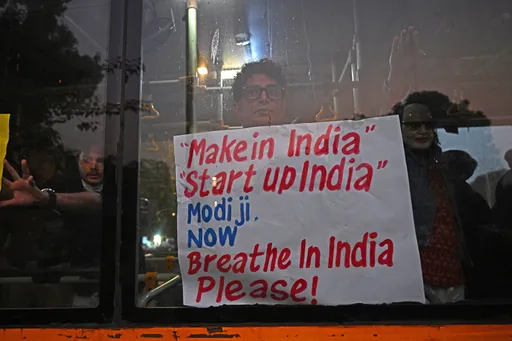 "Make in India"
"Start up India"
Modi ji,
NOW
Breathe In India
Please!